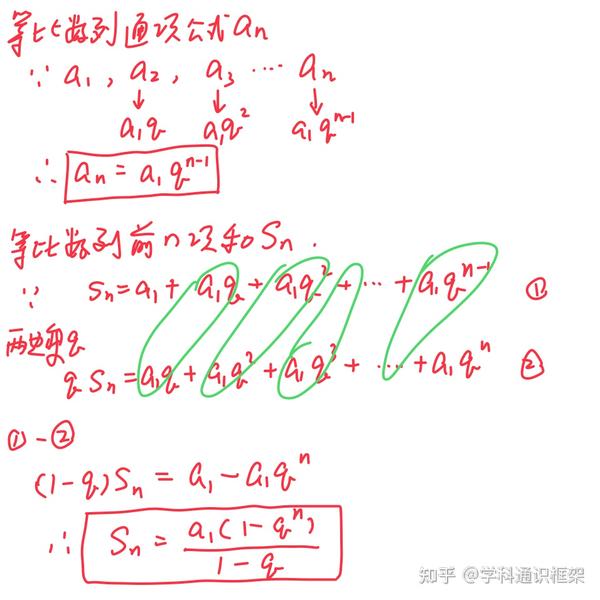 等比数列通项公式an
∵ a₁, a₂, a₃ ⋯ aₙ
↓ ↓ ↓
a₁q a₁q² a₁qⁿ⁻¹
∴ aₙ = a₁qⁿ⁻¹
等比数列前n项和Sₙ.
∵ Sₙ = a₁ + a₁q + a₁q² + ⋯ + a₁qⁿ⁻¹ ①
两边乘q
qSₙ = a₁q + a₁q² + a₁q³ + ⋯ + a₁qⁿ ②
① - ②
(1-q)Sₙ = a₁ - a₁qⁿ
∴ Sₙ = a₁(1-qⁿ) / 1-q
知乎 @学科通识框架